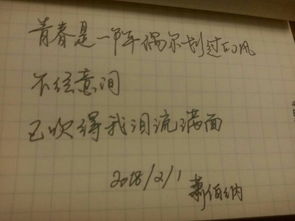 青春是一阵偶尔划过的风
不经意间
已吹得我泪流满面
2018/2/1 萧伯纳